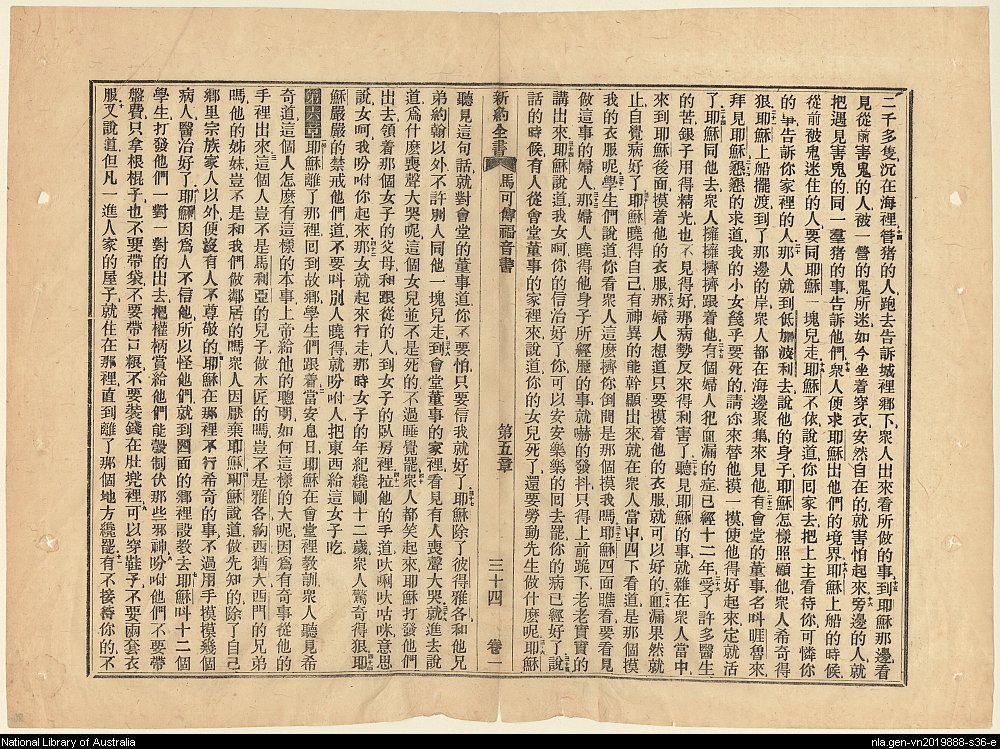 二千多隻沉在海裡管猪的人跑去告訴城裡鄉下衆人出來看所做的事到耶穌那邊看
見從前害鬼的人被一營的鬼所迷如今坐着穿衣安然自在的就害怕起來旁邊的人就
把遇見害鬼的同一羣猪的事告訴他們衆人便求耶穌出他們的境界耶穌上船的時候
從前被鬼迷住的人要同耶穌一塊兒走耶穌不依說道你回家去把上主看待你可憐你
的事告訴你家裡的人那人就到低加波利去說他的身子耶穌怎樣照顧他衆人希奇得
狠耶穌上船擺渡到了那邊的岸衆人都在海邊聚集來見他有會堂的董事名呌睚魯來
拜見耶穌懇懇的求道我的小女錢乎要死的請你來替他摸一摸使他得好起來定就活
了耶穌同他去衆人擁擁擠擠跟着他有個婦人犯血漏的症已經十二年受了許多醫生
的苦銀子用得精光也不見得好那病勢反來得利害了聽見耶穌的事就雜在衆人當中
來到耶穌後面摸着他的衣服那婦人想道只要摸着他的衣服就可以好的血漏果然就
止自覺病好了耶穌曉得自己有神異的能幹顯出來就在衆人當中四下看道是那個摸
我的衣服呢學生們說道你看衆人這麼擠你倒問是那個摸我嗎耶穌四面瞧看要看見
做這事的婦人那婦人曉得他身子所經歷的事就嚇的發抖只得上前跪下老老實實的
講出來耶穌說道我女呵你的信治好了你可以安安樂樂的回去罷你的病已經好了說
話的時候有人從會堂董事的家裡來說道你的女兒死了還要勞動先生做什麼呢耶穌
新約全書 馬可傳福音書 第五章 三十四 卷一
聽見這句話就對會堂的董事道你不要怕只要信我就好了耶穌除了彼得雅各和他兄
弟約翰以外不許別人同他一塊兒走到會堂董事的家裡看見有人喪聲大哭就進去說
道爲什麼喪聲大哭呢這個女兒並不是死的不過睡覺罷衆人都笑起來耶穌打發他們
出去領着那個女子的父母和跟從的人到女子的臥房裡拉他的手道吠唎吠咕咪意思
說女呵我吩咐你起來那女子就起來行走那時女子的年紀纔剛十二歲衆人驚奇得狠耶
穌嚴嚴的禁戒他們道不要呌別人曉得就吩咐人把東西給這女子吃
第六章耶穌離了那裡回到故鄉學生們跟着當安息日耶穌在會堂裡教訓衆人聽見希
奇道這個人怎麼有這樣的本事上帝給他的聰明如何這樣的大呢因爲有奇事從他的
手裡出來這個人豈不是馬利亞的兒子做木匠的嗎豈不是雅各約西猶大西門的兄弟
嗎他的姊妹豈不是和我們做鄰居的嗎衆人因厭棄耶穌耶穌說道做先知的除了自己
鄉里宗族家人以外便沒有人不尊敬的耶穌在那裡不行希奇的事不過用手摸摸幾個
病人醫治好了耶穌因爲人不信他所以怪他們就到四面的鄉裡設教去耶穌呌十二個
學生打發他們一對一對的出去把權柄賞給他們能彀制伏那些邪神吩咐他們不要帶
盤費只拿根棍子也不要帶袋不要帶口糧不要裝錢在肚兠裡可以穿鞋子不要兩套衣
服又說道但凡一進人家的屋子就住在那裡直到離了那個地方纔罷有不接待你的不
National Library of Australia
nla.gen-vn2019888-s36-e